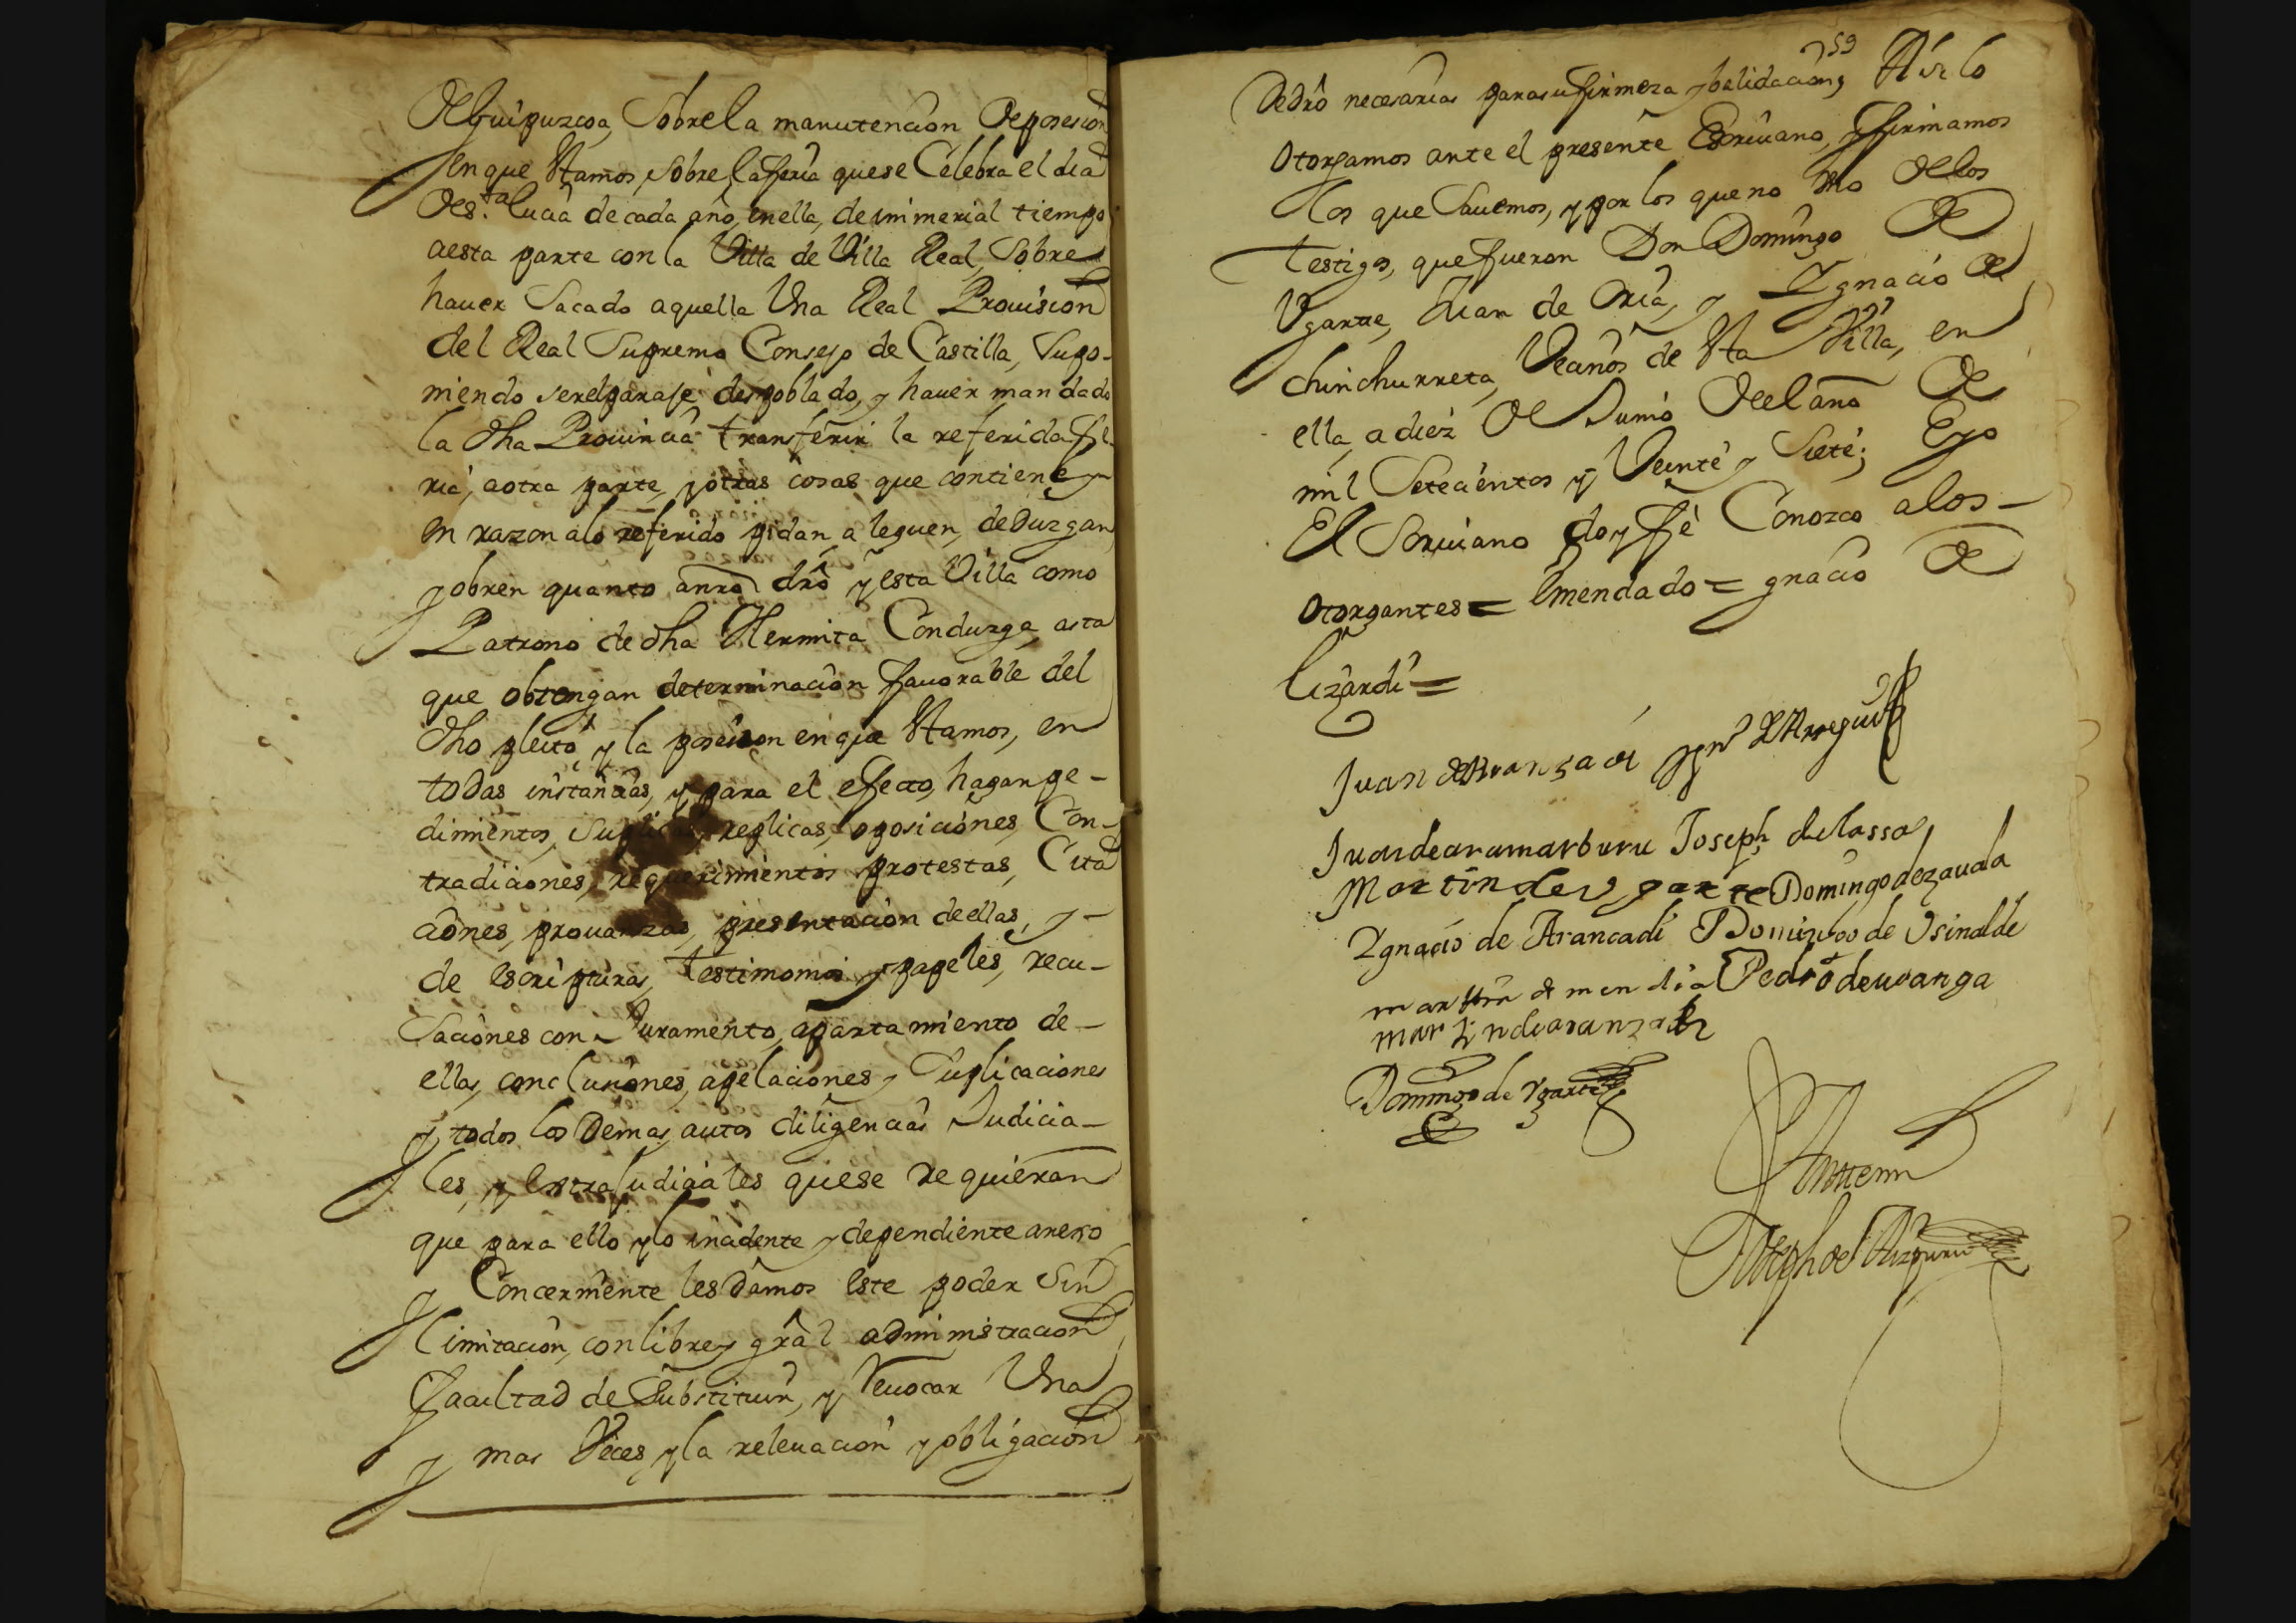 de Guipuzcoa, Sobre la manutencion de posesion
en que Stamos, sobre la feria que se Celebra el dia
de s.ta lucia de cada año, en ella, de inmemorial tiempo
a esta parte con la Villa de Villa Real, Sobre
hauer Sacado aquella Una Real Prouision
del Real Supremo Consejo de Castilla, Supo-
niendo ser el paraje despoblado, y hauer mandado
la dha Prouincia transferir la referida fe-
ria, a otra parte, y otras cosas que contiene y
en razon a lo referido pidan, aleguen, deduzgan,
y obren quanto a nro dro y esta Villa como
Patrono de dha Hermita Conduzga, asta
que obtengan determinacion fauorable del
dho pleito, y la posesion en que Stamos, en
todas instancias, y para el efecto, hagan pe-
dimientos, Suplicas, replicas, oposiciones, Con-
tradiciones, requerimientos protestas, Cita
ciones, prouanzas, presentacion de ellas, y -
de escripturas, testimonios y papeles, recu-
saciones con Juramento, apartamiento de -
ellas, conclusiones, apelaciones y Suplicaciones
y todos los Demas autos diligencias Judicia-
les, y extrajudiciales que se requieran
que para ello y lo incidente y dependiente anexo
y Concerniente les Damos este poder Sin
limitacion, con libre y gral administracion
facultad de Substituir, y Reuocar Una
y mas Veces, y la releuacion y obligacion
59
De dro necesarias para su firmeza y balidacion, Asi lo
otorgamos ante el presente Escriuano, y firmamos
los que Sauemos, y por los que no Vno de los
testigos, que fueron Don Domingo de
Vgarte, Juan de Oria, y Ygnacio de
chinchurreta, Vecinos de Sta Villa, en
ella, a diez de Junio del año de
mil Setecientos y Veinte y Siete; E yo
El Scriuano doy fe Conozco a los -
otorgantes = Emendado = gnacio de
lizardi =
Juan de Aranzadi
Juan de aramarburu Joseph de lassa
Martin de Vgarte Domingo de zauala
Ygnacio de Arancadi Domingo de Vsinalde
martin de mendia Pedro de uranga
martin de aranzadi
Domingo de Vgarte
Antemi
Joseph de Aizpuru